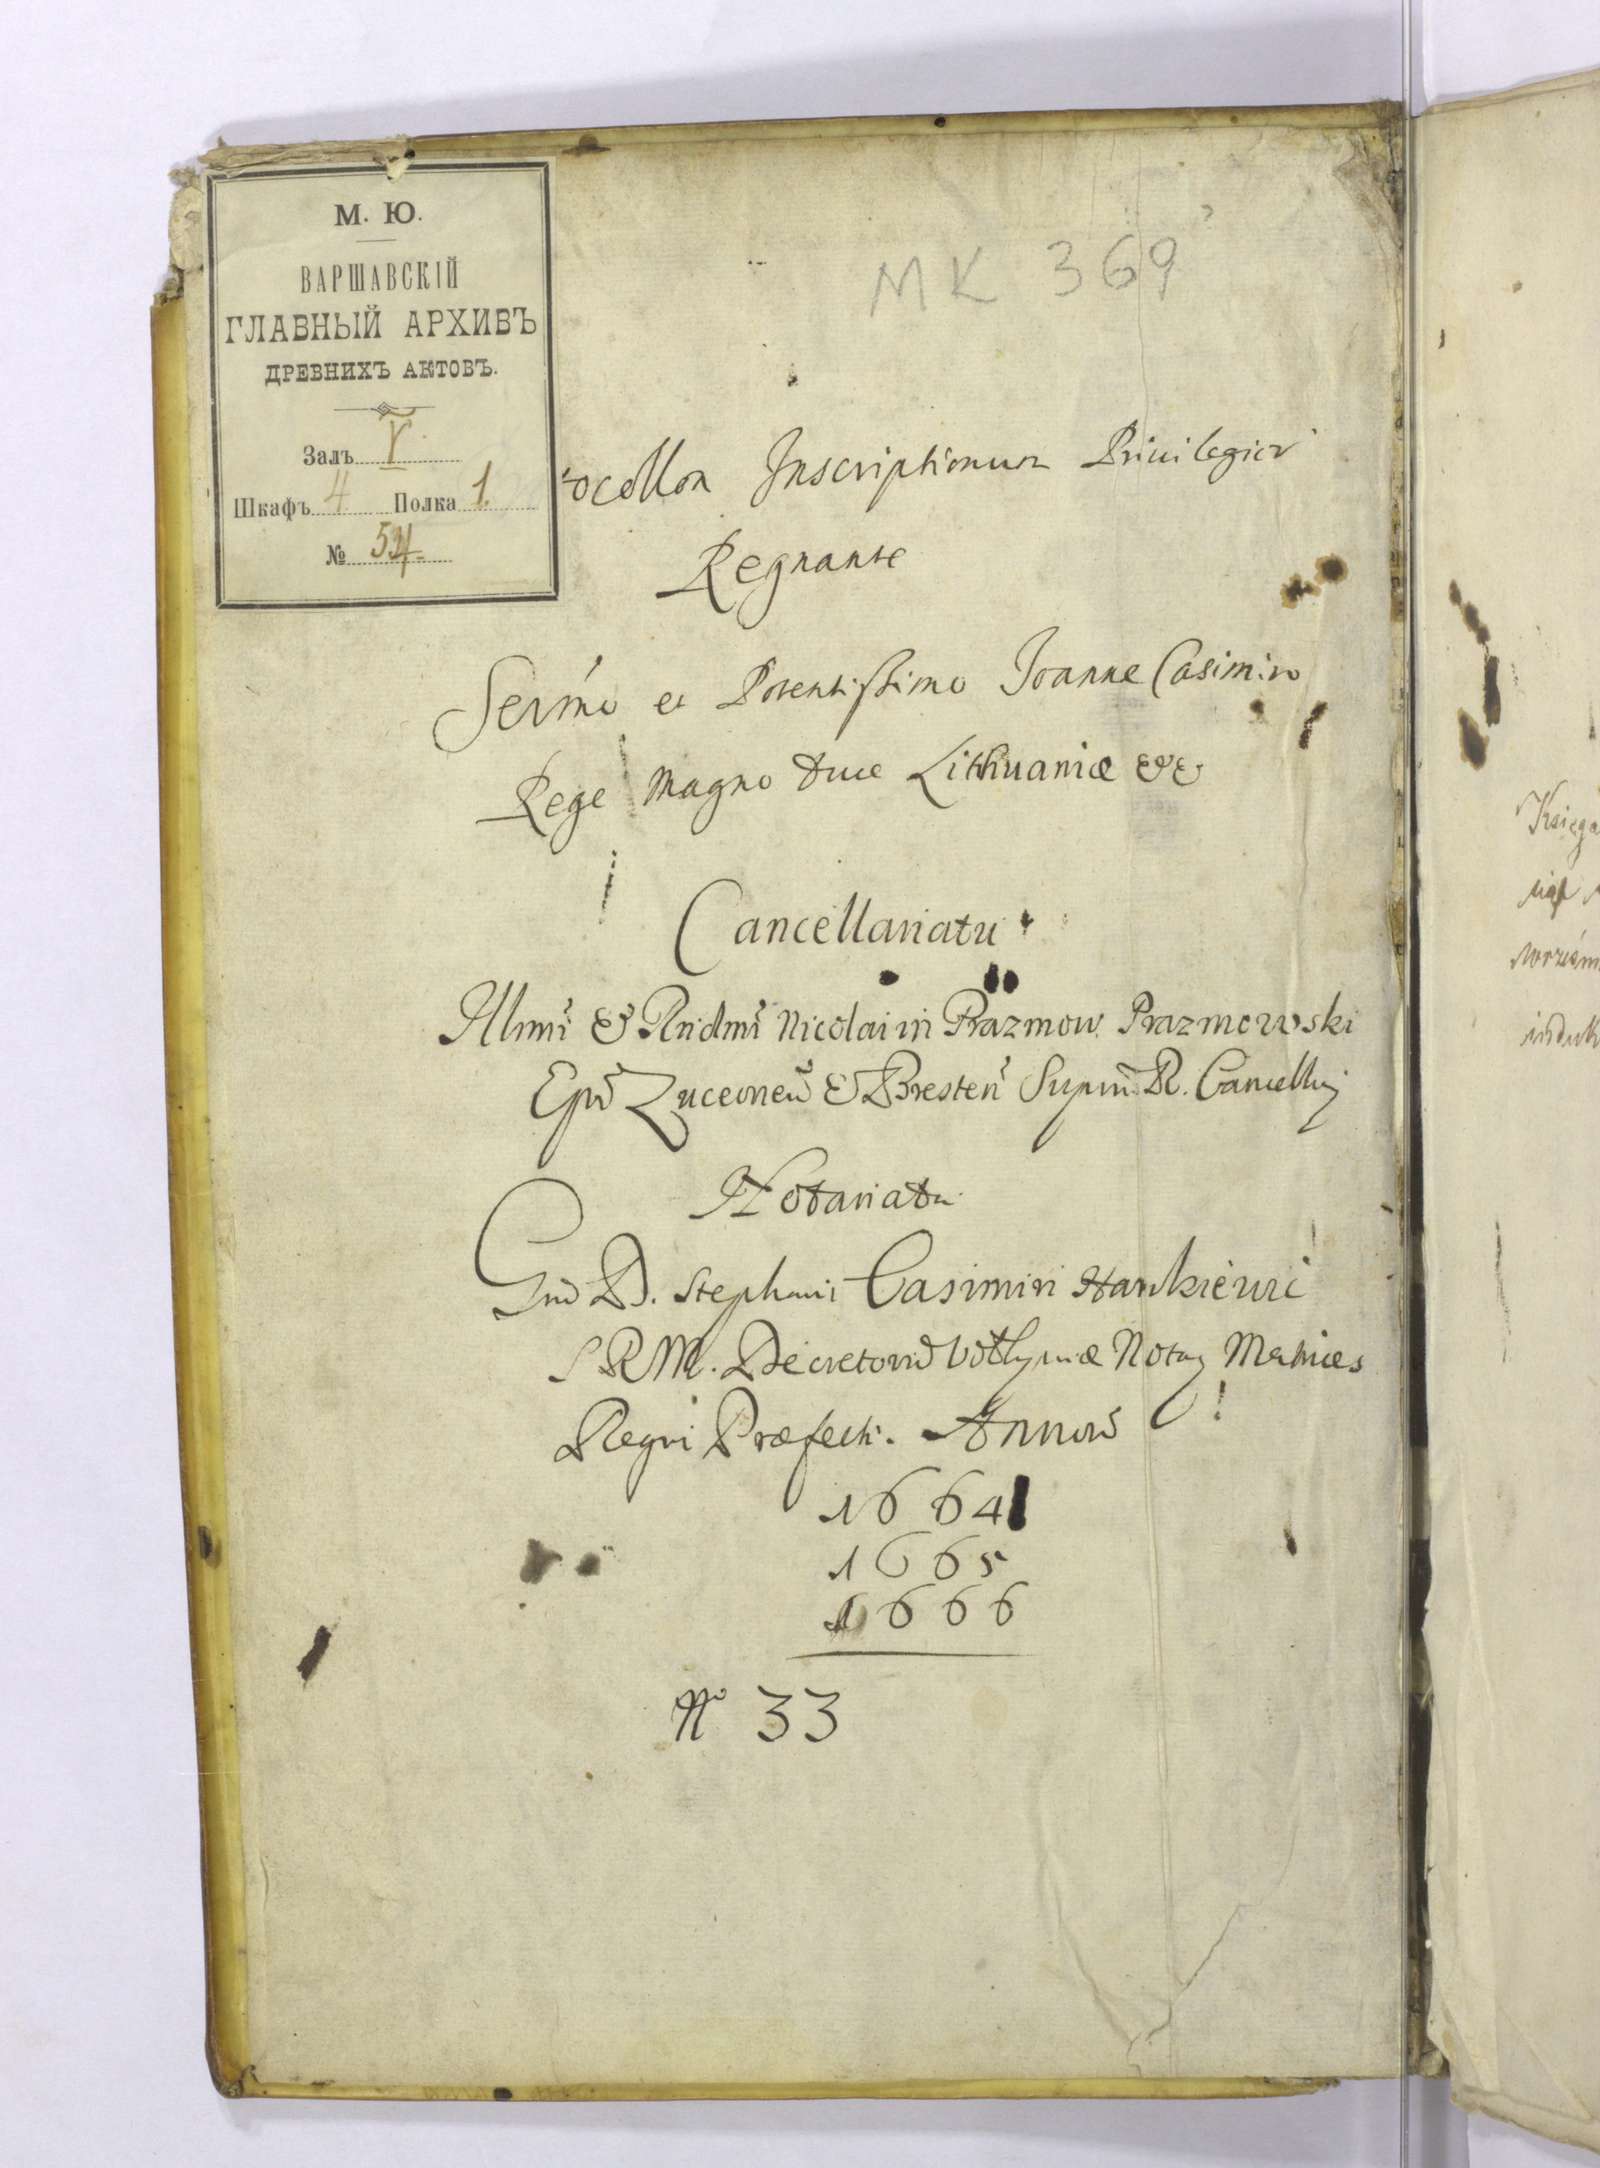 М. Ю.
ВАРШАВСКІЙ
ГЛАВНЫЙ АРХИВЪ
ДРЕВНИХЪ АКТОВЪ.
Залъ V
Шкафъ 4 Полка 1.
№ 54
MK 369
ocollon Inscriptionum Priuilegior
Regnante
Sermo et Potentissimo Ioanne Casimiro
Rege Magno Duce Lithuaniæ &&
Cancellariatu
Illmi & Rndmi Nicolai in Prazmow Prazmowski
Epi Luceorien & Bresten Supmi R. Cancellrij
Notariatu
Gnd D. Stephani Casimiri Hankiewic
SRM. Decretorū Volhyniæ Notarij Metrices
Regni Præfecti. Annorū
1664
1665
1666
No 33
Księga